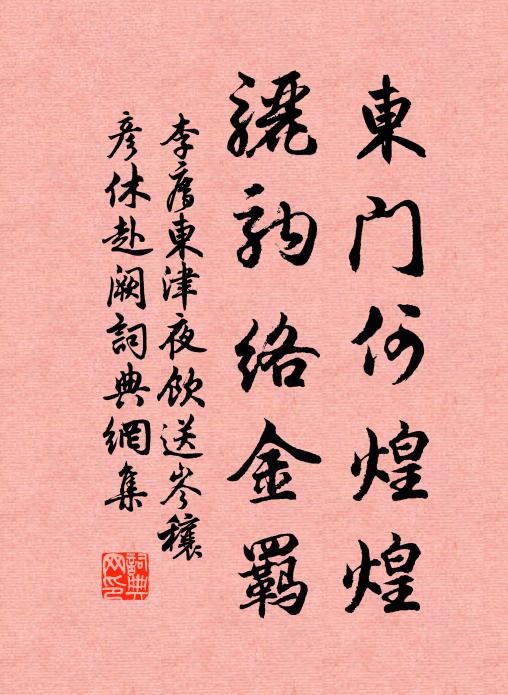 東門何煌煌
驪駒絡金羈
李廌東津夜飲送岑穰
彥休赴闕詞典網集
詞典网印